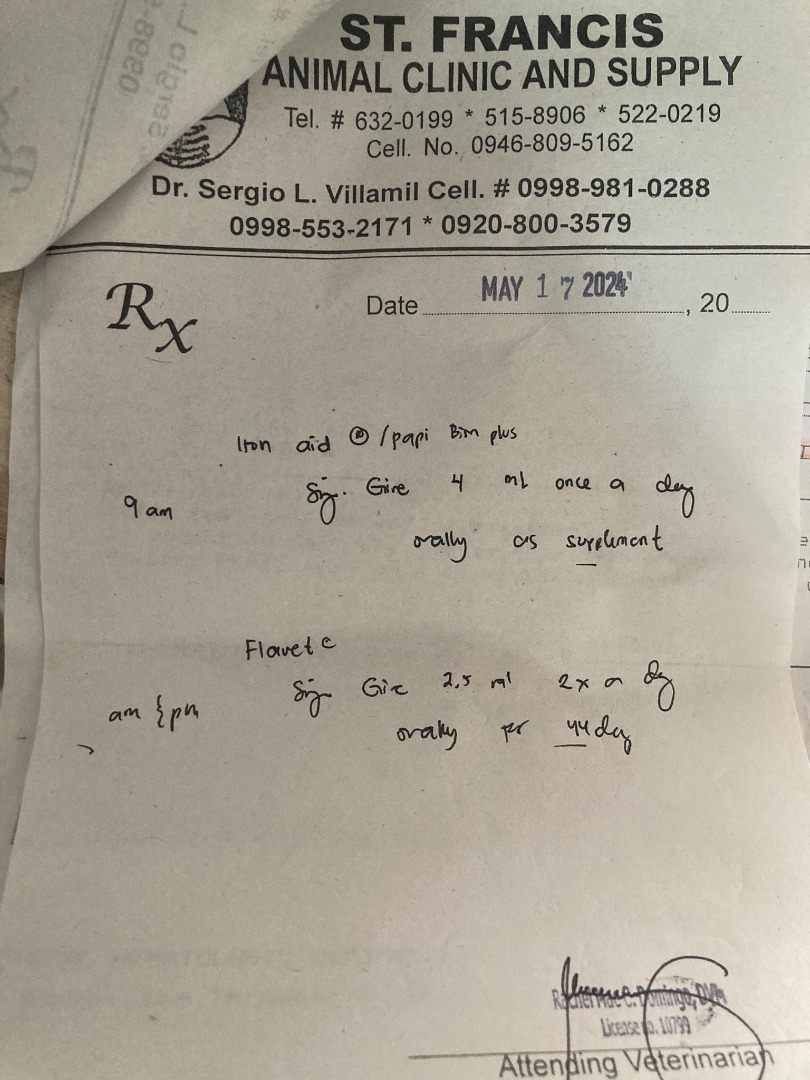 ST. FRANCIS
ANIMAL CLINIC AND SUPPLY
Tel. # 632-0199 * 515-8906 * 522-0219
Cell. No. 0946-809-5162
Dr. Sergio L. Villamil Cell. # 0998-981-0288
0998-553-2171 * 0920-800-3579
Rx
Date MAY 17 2024, 20
Iron aid /papi Bim plus
9 am Sig. Give 4 ml once a day
orally as supplement
Flavet c
am & pm Sig Give 2.5 ml 2x a dy
orally day
Domingo, DVM
License no. 10799
Attending Veterinarian